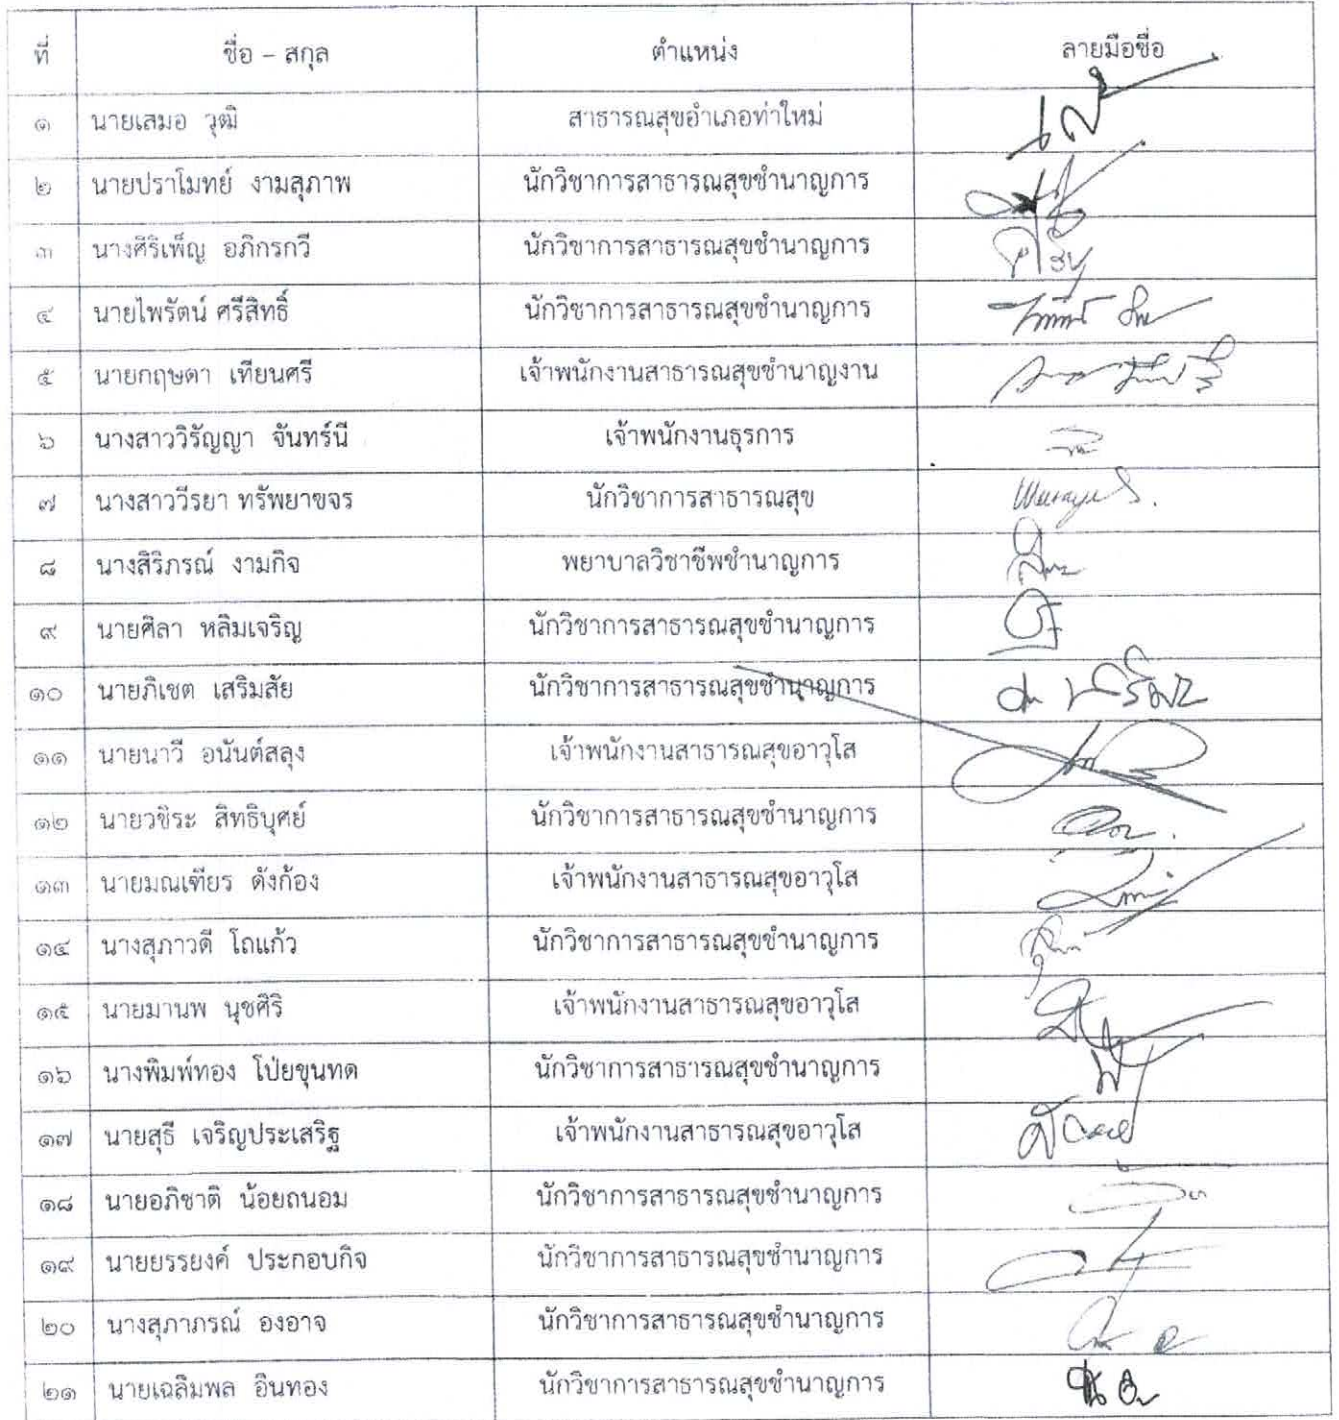 ที่ ชื่อ – สกุล ตำแหน่ง ลายมือชื่อ
๑ นายเสมอ วุฒิ สาธารณสุขอำเภอท่าใหม่
๒ นายปราโมทย์ งามสุภาพ นักวิชาการสาธารณสุขชำนาญการ
๓ นางศิริเพ็ญ อภิกรกวี นักวิชาการสาธารณสุขชำนาญการ
๔ นายไพรัตน์ ศรีสิทธิ์ นักวิชาการสาธารณสุขชำนาญการ
๕ นายกฤษดา เทียนศรี เจ้าพนักงานสาธารณสุขชำนาญงาน
๖ นางสาววิรัญญา จันทร์นี เจ้าพนักงานธุรการ
๗ นางสาววีรยา ทรัพยาขจร นักวิชาการสาธารณสุข
๘ นางสิริภรณ์ งามกิจ พยาบาลวิชาชีพชำนาญการ
๙ นายศิลา หลิมเจริญ นักวิชาการสาธารณสุขชำนาญการ
๑๐ นายภิเชต เสริมสัย นักวิชาการสาธารณสุขชำนาญการ
๑๑ นายนาวี อนันต์สลุง เจ้าพนักงานสาธารณสุขอาวุโส
๑๒ นายวชิระ สิทธิบุศย์ นักวิชาการสาธารณสุขชำนาญการ
๑๓ นายมณเฑียร ดังก้อง เจ้าพนักงานสาธารณสุขอาวุโส
๑๔ นางสุภาวดี โถแก้ว นักวิชาการสาธารณสุขชำนาญการ
๑๕ นายมานพ นุชศิริ เจ้าพนักงานสาธารณสุขอาวุโส
๑๖ นางพิมพ์ทอง โป่ยขุนทด นักวิชาการสาธารณสุขชำนาญการ
๑๗ นายสุธี เจริญประเสริฐ เจ้าพนักงานสาธารณสุขอาวุโส
๑๘ นายอภิชาติ น้อยถนอม นักวิชาการสาธารณสุขชำนาญการ
๑๙ นายยรรยงค์ ประกอบกิจ นักวิชาการสาธารณสุขชำนาญการ
๒๐ นางสุภาภรณ์ องอาจ นักวิชาการสาธารณสุขชำนาญการ
๒๑ นายเฉลิมพล อินทอง นักวิชาการสาธารณสุขชำนาญการ